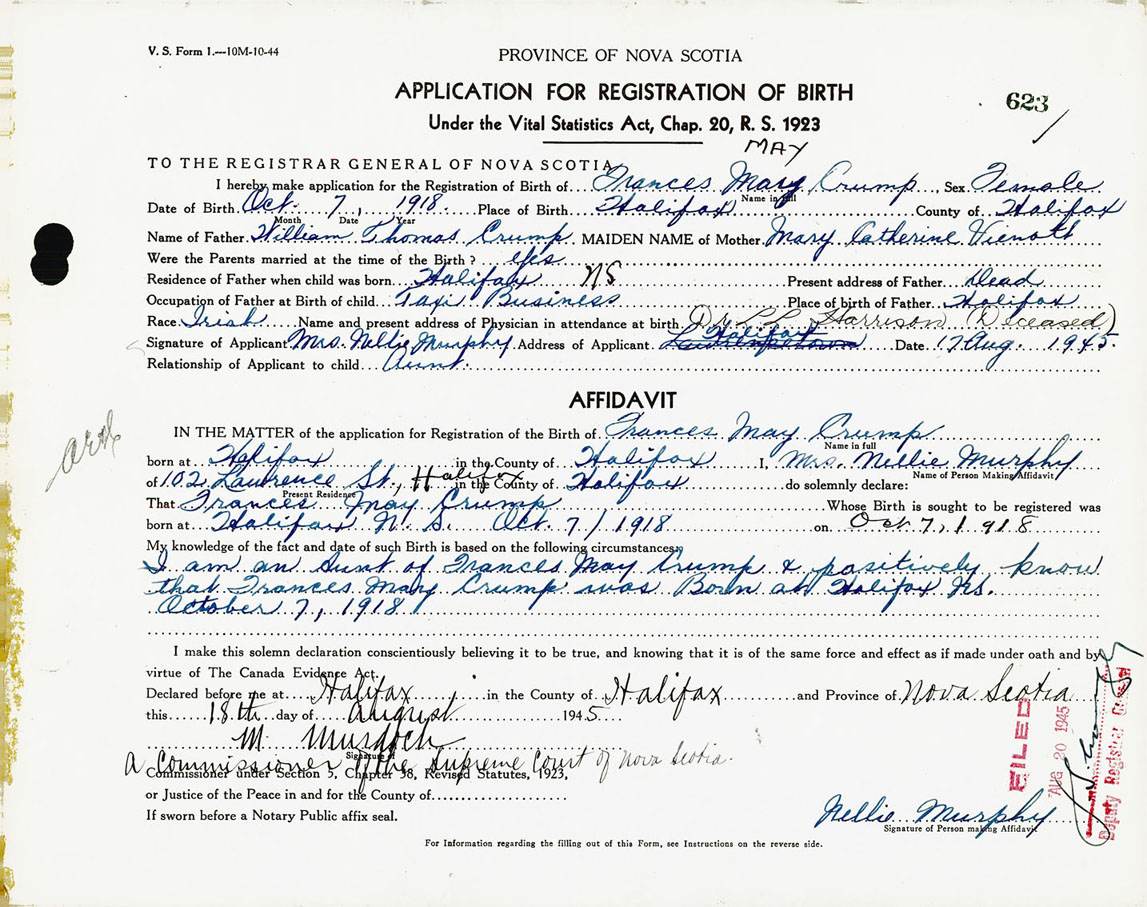 V. S. Form 1.—10M-10-44
PROVINCE OF NOVA SCOTIA
APPLICATION FOR REGISTRATION OF BIRTH
623
Under the Vital Statistics Act, Chap. 20, R. S. 1923
MAY
TO THE REGISTRAR GENERAL OF NOVA SCOTIA
I hereby make application for the Registration of Birth of Frances Mary Crump Sex Female
Name in full
Date of Birth Oct. 7, 1918 Place of Birth Halifax County of Halifax
Month Date Year
Name of Father William Thomas Crump MAIDEN NAME of Mother Mary Catherine Vienott
Were the Parents married at the time of the Birth? yes
Residence of Father when child was born Halifax NS Present address of Father Dead
Occupation of Father at Birth of child Taxi Business Place of birth of Father Halifax
Race Irish Name and present address of Physician in attendance at birth Dr P.P. Harrison (Deceased)
Signature of Applicant Mrs. Nellie Murphy Address of Applicant Halifax Date 17 Aug. 1945.
Relationship of Applicant to child Aunt.
AFFIDAVIT
IN THE MATTER of the application for Registration of the Birth of Frances May Crump
Name in full
born at Halifax in the County of Halifax I, Mrs. Nellie Murphy
Name of Person Making Affidavit
of 102 Lawrence St., Halifax in the County of Halifax do solemnly declare:
Present Residence
That Frances May Crump Whose Birth is sought to be registered was
born at Halifax N. S. Oct. 7/1918 on Oct 7, 1918
My knowledge of the fact and date of such Birth is based on the following circumstances:
I am an Aunt of Frances May Crump & positively know
that Frances Mary Crump was Born at Halifax N.S.
October 7, 1918
I make this solemn declaration conscientiously believing it to be true, and knowing that it is of the same force and effect as if made under oath and by
virtue of The Canada Evidence Act.
Declared before me at Halifax in the County of Halifax and Province of Nova Scotia
this 18th day of August 1945
M. Murdoch
Signature of
A Commissioner of the Supreme Court of Nova Scotia.
Commissioner under Section 5, Chapter 38, Revised Statutes, 1923,
or Justice of the Peace in and for the County of
If sworn before a Notary Public affix seal.
Nellie Murphy
Signature of Person making Affidavit
For Information regarding the filling out of this Form, see Instructions on the reverse side.
FILED
AUG 20 1945
Deputy Registrar General